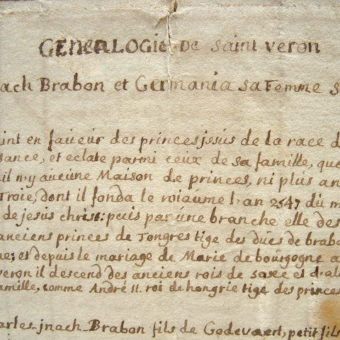 GENEALOGIE De saint veron
nach Brabon et Germania sa Femme s
int en faueur des princes jssus de la race d
sance, et eclate parmi ceux de sa famille, que
il ny aucune Maison de princes, ni plus an
troie, dont il fonda le roiaume l'an 2547 du m
de jesus christ; puis pas une branche elle des
anciens princes de Tongres tige des dues de brabo
ne; et depuis le mariage de Marie de bourgogne a
veron il descend des anciens rois de saxe et d'al
amille, comme André II. roi de hongrie tige des princes
arles jnach Brabon fils de Godevaert, petit fils